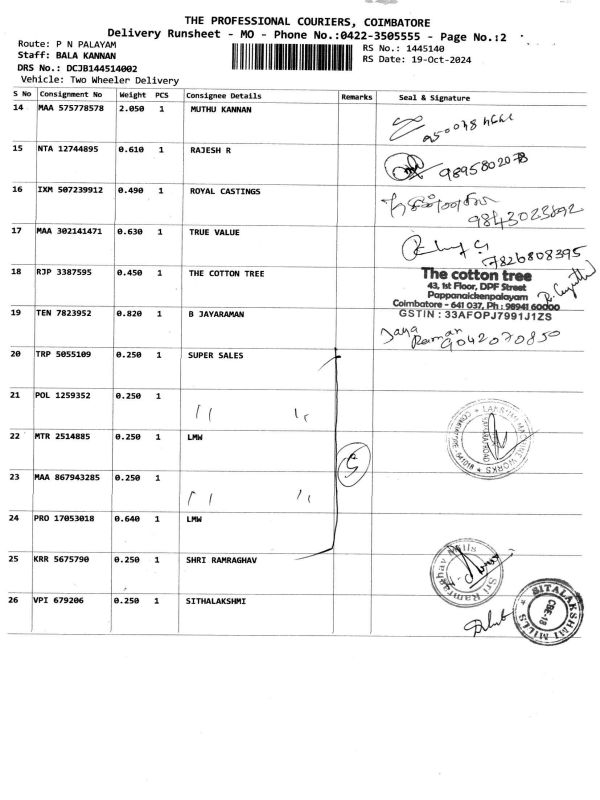 THE PROFESSIONAL COURIERS, COIMBATORE
Delivery Runsheet - MO - Phone No.:0422-3505555 - Page No.:2
Route: P N PALAYAM
RS No.: 1445140
Staff: BALA KANNAN
RS Date: 19-Oct-2024
DRS No.: DCJB144514002
Vehicle: Two Wheeler Delivery
S No Consignment No Weight PCS Consignee Details Remarks Seal & Signature
14 MAA 575778578 2.050 1 MUTHU KANNAN
15 NTA 12744895 0.610 1 RAJESH R
9895802078
16 IXM 507239912 0.490 1 ROYAL CASTINGS
17 MAA 302141471 0.630 1 TRUE VALUE
7826808395
18 RJP 3387595 0.450 1 THE COTTON TREE
The cotton tree
43, 1st Floor, DPF Street
Pappanaickenpalayam
Coimbatore - 641 037, Ph : 98941 60000
GSTIN : 33AFOPJ7991J1ZS
19 TEN 7823952 0.820 1 B JAYARAMAN
Jaya
Raman
9042070850
20 TRP 5055109 0.250 1 SUPER SALES
21 POL 1259352 0.250 1 " "
22 MTR 2514885 0.250 1 LMW
5
LAKSHMI MACHINE WORKS
23 MAA 867943285 0.250 1 " "
24 PRO 17053018 0.640 1 LMW
25 KRR 5675790 0.250 1 SHRI RAMRAGHAV
Sri Ramraghav Mills
26 VPI 679206 0.250 1 SITHALAKSHMI
SITALAKSHMI MILLS
CBE-18